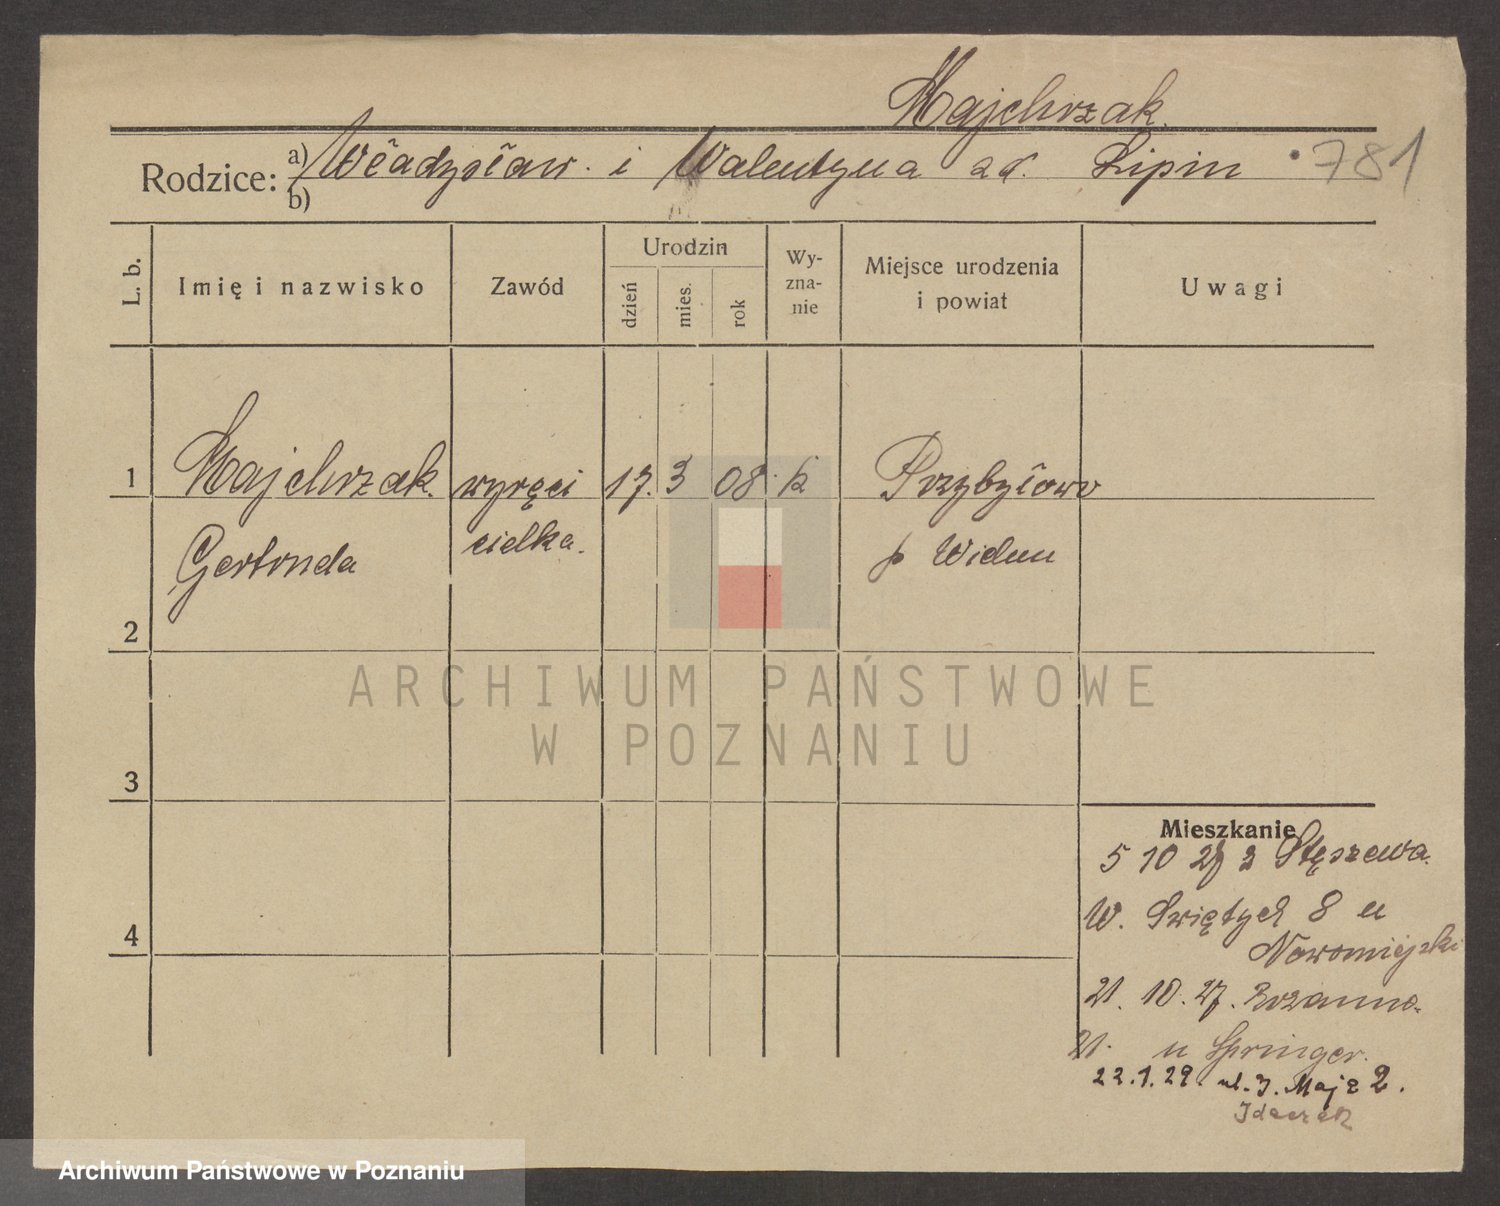 Majchrzak.
Rodzice: a) Władysław i Walentyna zd. Lipin 781
b)
L. b. Imię i nazwisko Zawód Urodzin dzień mies. rok Wy-zna-nie Miejsce urodzenia i powiat Uwagi
1 Majchrzak. wyręci 17. 3 08 k Przybyłowo
Gertruda cielka. p Wieluń
2
3
4
Mieszkanie
5 10 27 z Stęszewa.
W. Świętych 8 u
Nowomiejski
21. 10. 27.
21. u Springer.
22.1.29. ul. 3. Maja 2.
ARCHIWUM PAŃSTWOWE
W POZNANIU
Archiwum Państwowe w Poznaniu